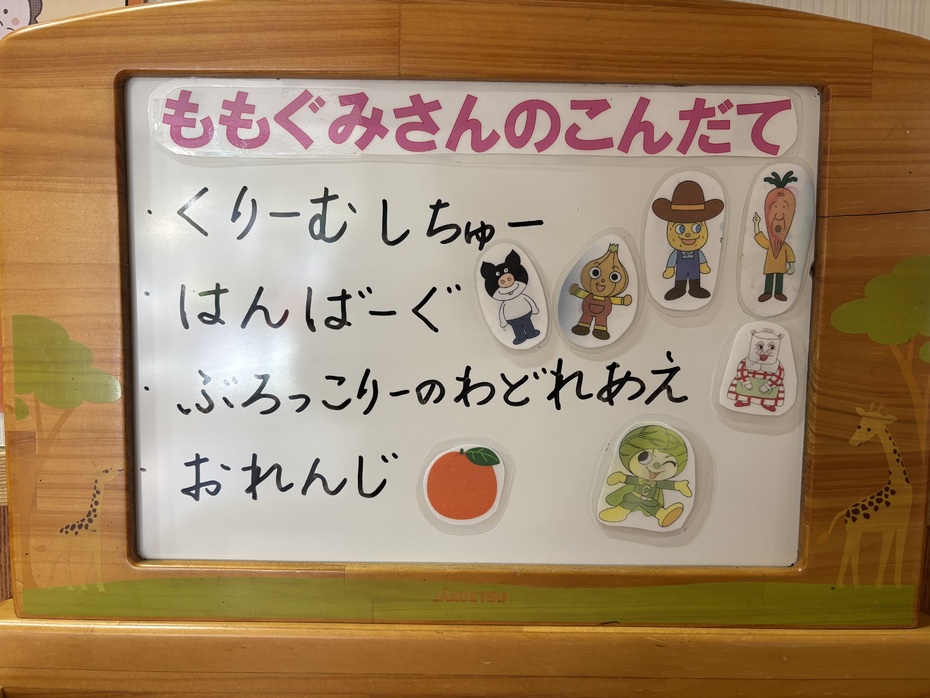 ももぐみさんのこんだて
くりーむしちゅー
はんばーぐ
ぶろっこりーのわどれあえ
おれんじ